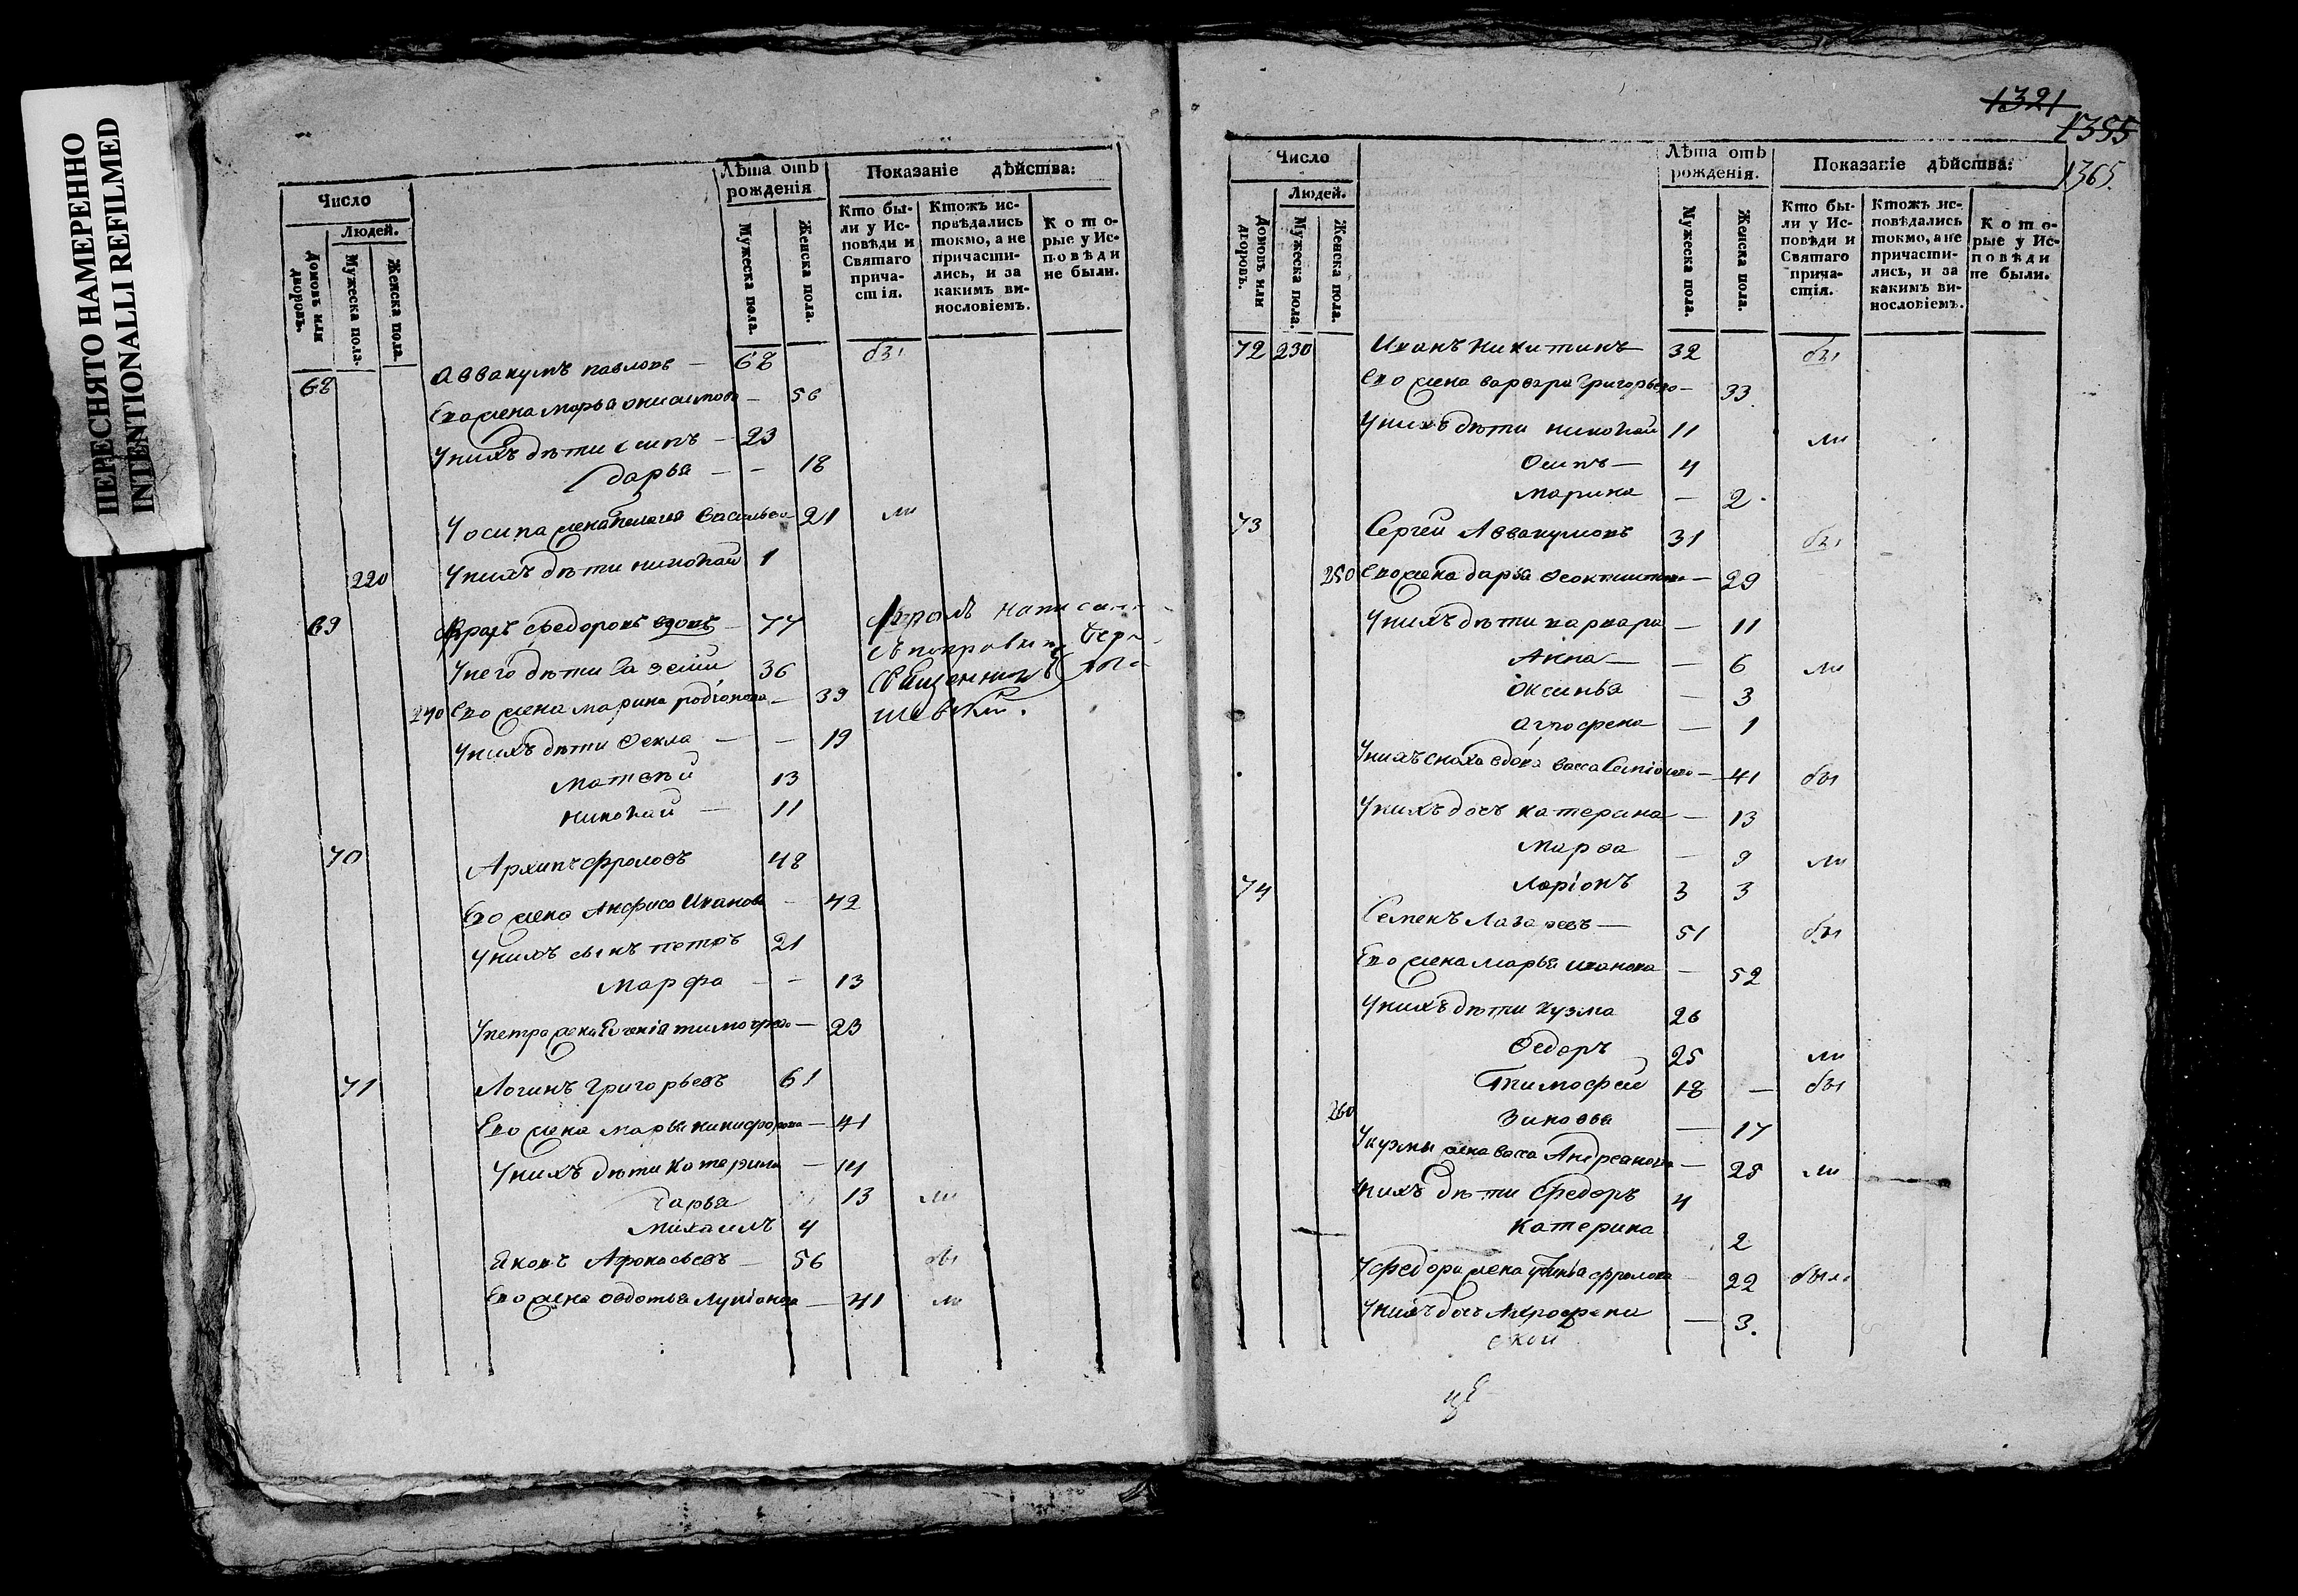 ПЕРЕСНЯТО НАМЕРЕННО
INTENTIONALLI REFILMED
Число
Людей.
Домовъ или дворовъ.
Мужеска пола.
Женска пола.
Лѣта отъ рожденія
Мужеска пола.
Женска пола.
Показаніе дѣйства:
Кто были у Исповѣди и Святаго причастія.
Ктожъ исповѣдались токмо, а не причастились, и за какимъ винословіемъ.
Которые у Исповѣди не были.
68 Аввакумъ павловъ — 68 бы
Его жена марья онисимова — 56
У нихъ дѣти осипъ — 23
дарья — — 18
У осипа жена Пелагея Васильева — 21 ли
220 У нихъ дѣти николай 1
69 Фролъ Федоровъ вдовъ — 77
У него дѣти 36
240 Его жена марина родіонова — 39
У нихъ дѣти Фекла — — 19
Матвѣй 13
николай — 11
Фролъ написан
съ поправкі
Священникъ
шевский.
70 Архипъ фроловъ 48
Его жена Анфиса Иванова — 42
У нихъ сынъ петръ 21
Марфа — — 13
У петра жена Евгенія тимофеева — 23
71 Логинъ григорьевъ 61
Его жена марья никифорова — 41
У нихъ дѣти Катерина — 14
Дарья 13 ли
Михаилъ 4
Яковъ Афонасьевъ — 56 бы
Его жена овдотья Лупіонова — 41 ли
1321
1355
1365.
Число
Людей.
Домовъ или дворовъ.
Мужеска пола.
Женска пола.
Лѣта отъ рожденія.
Мужеска пола.
Женска пола.
Показаніе дѣйства:
Кто были у Исповѣди и Святаго причастія.
Ктожъ исповѣдались токмо, а не причастились, и за какимъ винословіемъ.
Которые у Исповѣди не были.
72 230 Иванъ Никитинъ 32 бы
Его жена варвара Григорьева — 33
У нихъ дѣти николай 11 ли
Осипъ — 4
Марина — 2
73 Сергей Аввакумовъ 31 бы
250 Его жена дарья Феоктистова — 29
У нихъ дѣти варвара — 11
Анна — — 6 ли
Оксинья — 3
Агрофена — 1
У нихъ сноха вдова васса — 41 бы
У нихъ дочь катерина — 13
Марѳа — 9 ли
74 Ларіонъ 3 3
Семенъ Лазаревъ — 51 бы
Его жена марья иванова — 52
У нихъ дѣти Кузма 26
Федоръ 25 ли
Тимофей 18 — бы
260 Зиновья — 17
У кузмы жена васа Андреанова — 28 ли
У нихъ дѣти Федоръ 4
Катерина 2
У федора жена фролова 22 были
У нихъ дочь Агрофена — 3.
ской